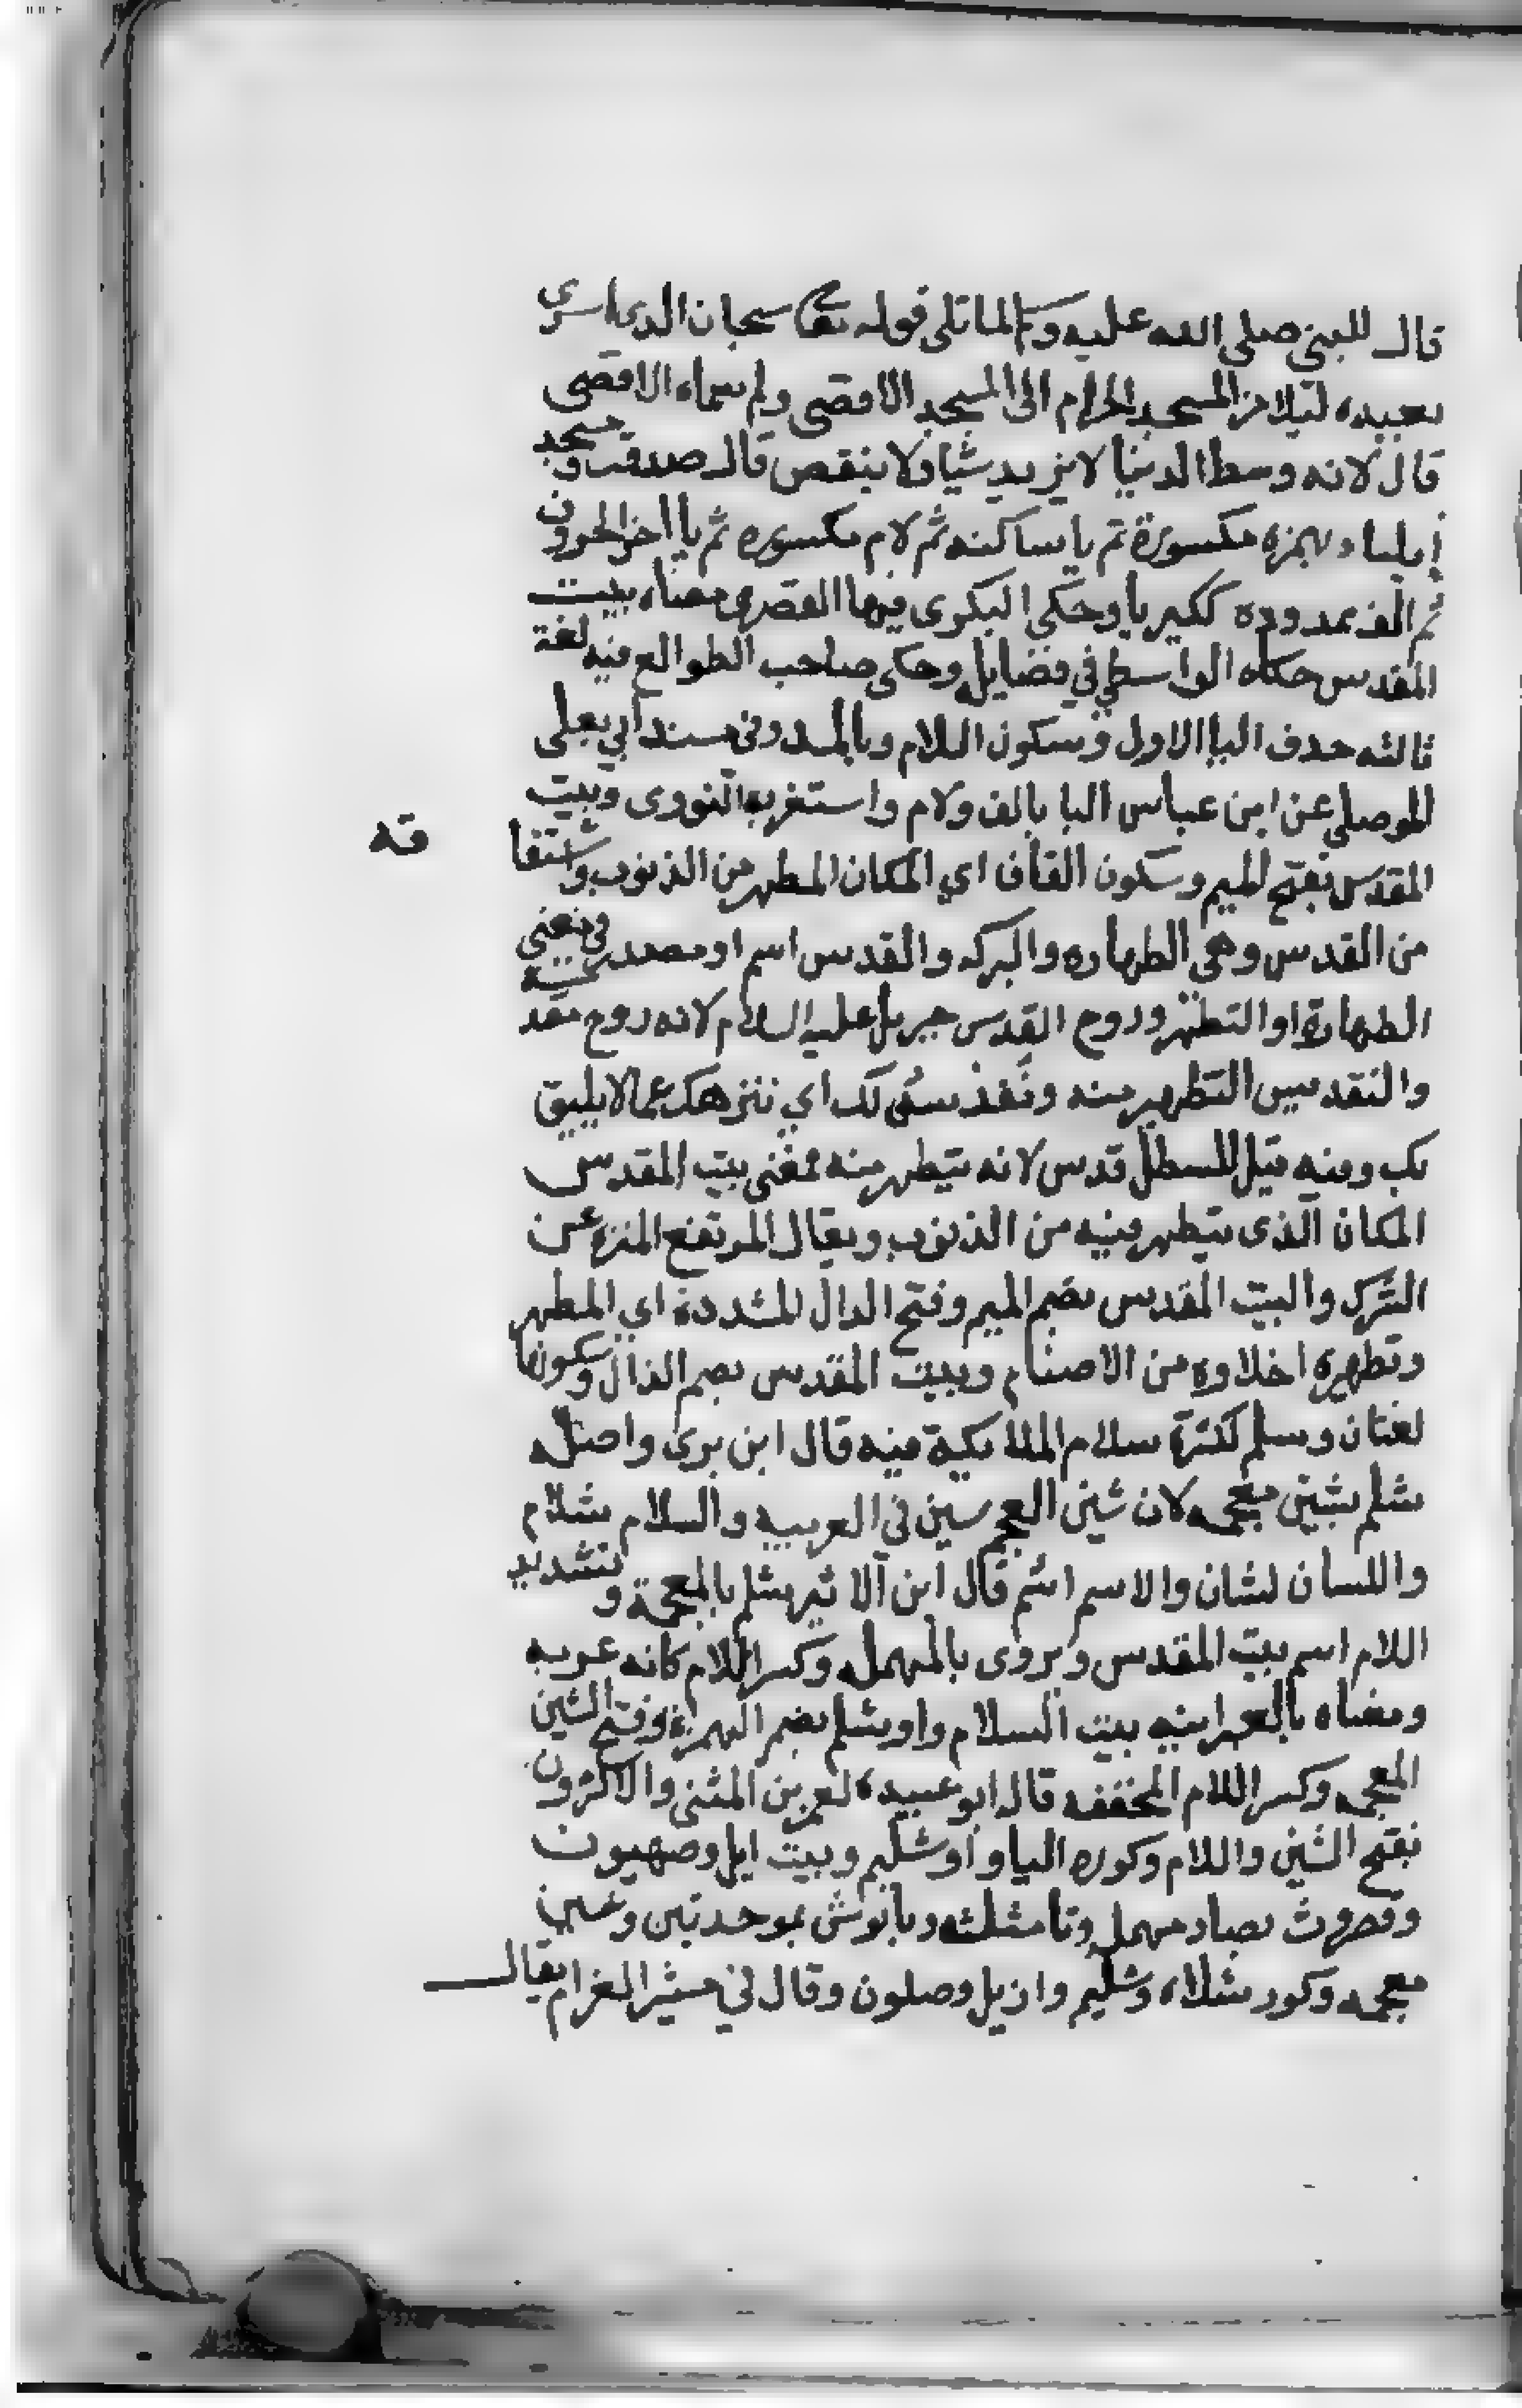 قال للنبي صلى الله عليه وسلم لما تلى قوله تعالى سبحان الدى اسرى
بعبده ليلا من المسجد الحرام الى المسجد الاقصى ولم سماه الاقصى
قال لانه وسط الدنيا لا يزيد شيا ولا ينقص قال صدقت ومسجد
إيلياء بهمزة مكسورة ثم يا ساكنه ثم لام مكسوره ثم يا اخر الحروف
ثم الف ممدوده ككبريا وحكى البكرى فيها القصر ومعناه بيت
المقدس حكاه الواسطي في فضايله وحكى صاحب الطوالع فيه لغة
ثالثه حدف اليا الاولى وسكون اللام وبالمد وفى مسند أبي يعلى
الموصلي عن ابن عباس اليا بالف ولام واستغربه النووى وبيت
المقدس بفتح الميم وسكون القاف اي المكان المطهر من الذنوب واشتقا
قه
من القدس وهي الطهاره والبركه والقدس اسم او مصدر في معنى
الطهارة او التطهر وروح القدس جبريل عليه السلام لانه روح مقدسة
والتقديس التطهير منه ونقدس لك اي ننزهك عما لا يليق
بك ومنه قيل للسطل قدس لانه يتطهر منه فمعنى بيت المقدس
المكان الذى يتطهر فيه من الذنوب ويقال المرتفع المنزه عن
الشرك والبيت المقدس بضم الميم وفتح الدال المشددة اي المطهر
وتطهيره اخلاوه من الاصنام وبيت المقدس بضم الدال وسكونها
لغتان وسلم لكثرة سلام الملايكة فيه قال ابن برى واصله
شلم بشين معجمه لان شين العجم سين في العربيه والسلام شلام
واللسان لشان والاسم اشم قال ابن الاثير شلم بالمعجمة وتشديد
اللام اسم بيت المقدس ويروى بالمهمله وكسر اللام كانه عربه
ومعناه بالعبرانيه بيت السلام واوريشلم بضم الهمزة وفتح الشين
المعجمه وكسر اللام المخففه قاله ابو عبيده معمر بن المثنى والاكثرون
بفتح الشين واللام وكوره اليا و أوشليم وبيت ايل وصهيون
وقصروث بصاد مهمله وثا مثلثه وبابوش بموحدتين وشين
معجمه وكور شلاه وشليم وازيل وصلون وقال في مثير الغرام يقال